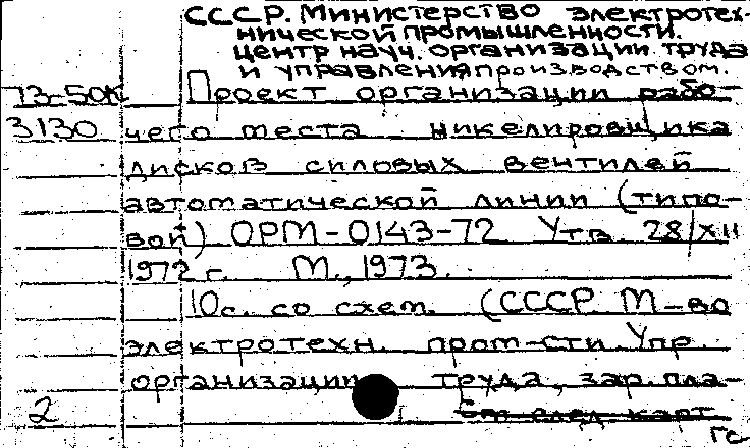 СССР. Министерство электротех-
нической промышленности.
Центр науч. организации труда
и управления производством.
73-50К Проект организации рабо-
3130 чего места никелировщика
дисков силовых вентилей
автоматической линии (типо-
вой) ОРМ-0143-72 Утв. 28/XII
1972 г. М., 1973.
10с. со схем. (СССР. М-во
электротехн. пром-сти. Упр.
организации труда, зар. пла-
2 См. след. карт.